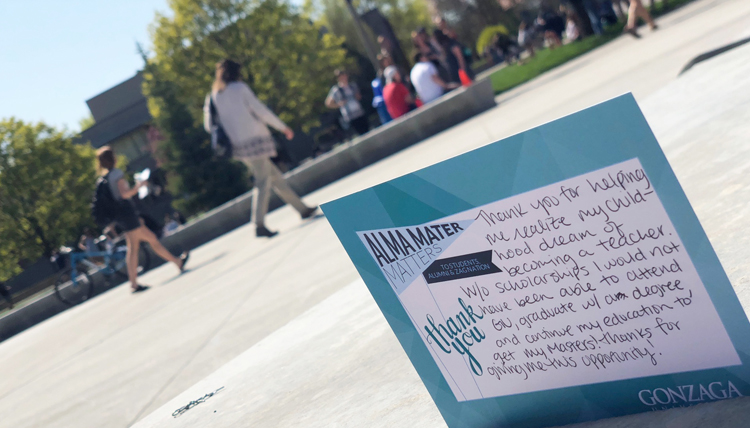 ALMA MATER
MATTERS
TO STUDENTS
ALUMNI & ZAGNATION
thank
you
Thank you for helping
me realize my child-
hood dream of
becoming a teacher.
W/o scholarships I would not
have been able to attend
GU, graduate w/ a degree
and continue my education to
get my Masters! Thanks for
giving me this opportunity!
GONZAGA